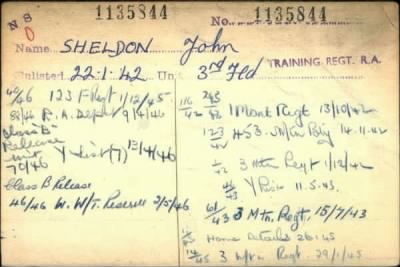 1135844
No. 1135844
Name SHELDON John
Enlisted 22.1.42 Unit 3rd Fld TRAINING REGT. R.A.
40/46 123 F Regt 1/12/45
R.A. Depot 9/4/46
Class "B" Release
70/46 Y List (7) 13/4/46
Class B Release
46/46 W. W/T. Reserve 2/5/46
116/42 1 Mont Regt 13/10/42
123/42 453 Bty 14.11.42
3 Mtn Regt 1/12/42
Y List 11.5.43
61/43 3 Mtn. Regt. 15/7/43
Home Details 26.1.45
3 Mtn Regt. 29/1/45